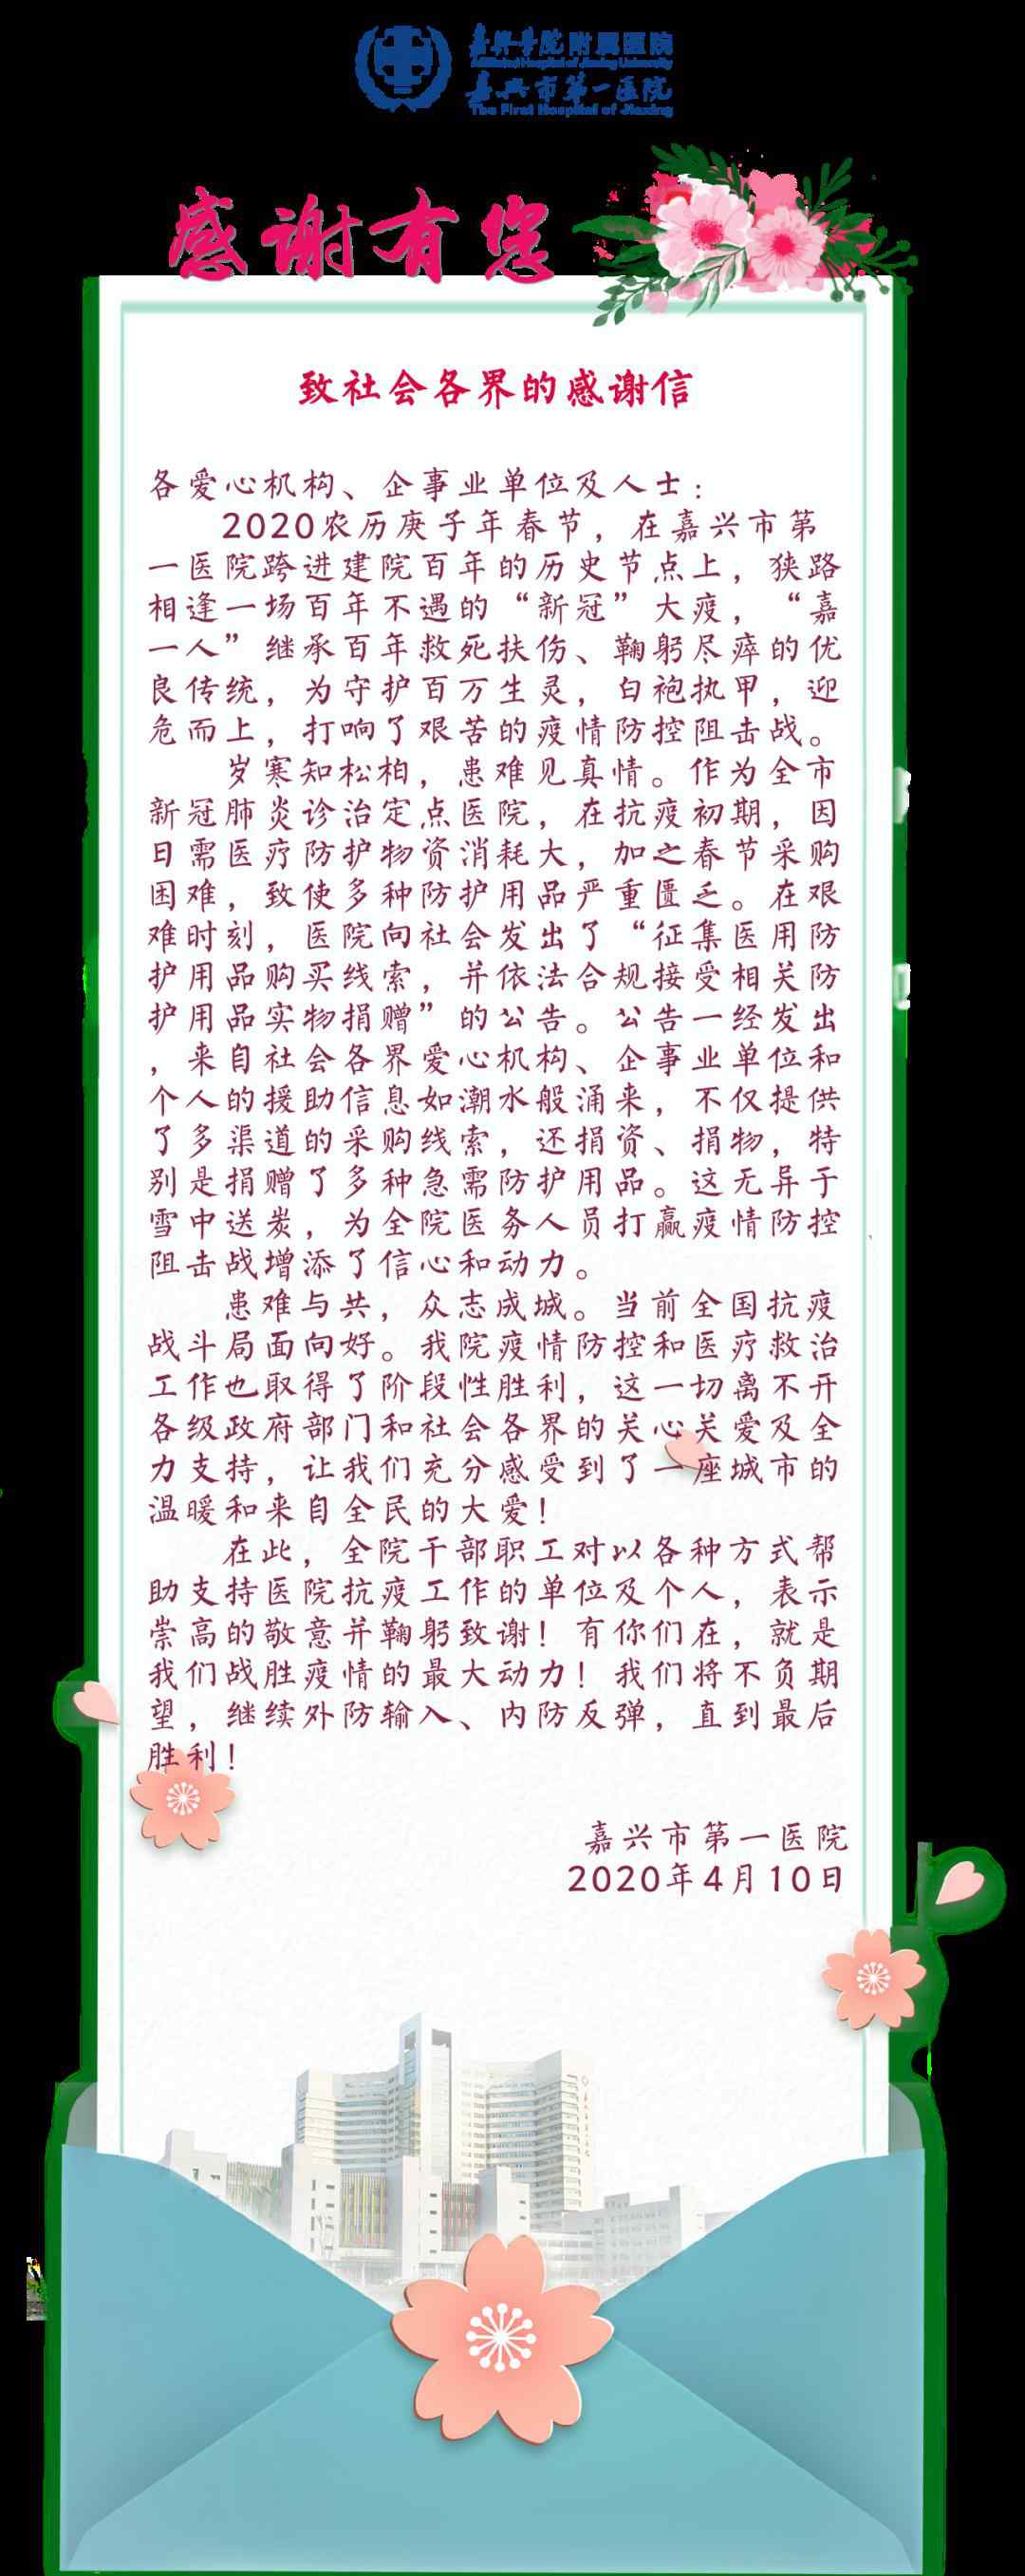 嘉兴学院附属医院
Affiliated Hospital of Jiaxing University
嘉兴市第一医院
The First Hospital of Jiaxing
感谢有您
致社会各界的感谢信
各爱心机构、企事业单位及人士：
2020农历庚子年春节，在嘉兴市第
一医院跨进建院百年的历史节点上，狭路
相逢一场百年不遇的“新冠”大疫，“嘉
一人”继承百年救死扶伤、鞠躬尽瘁的优
良传统，为守护百万生灵，白袍执甲，迎
危而上，打响了艰苦的疫情防控阻击战。
岁寒知松柏，患难见真情。作为全市
新冠肺炎诊治定点医院，在抗疫初期，因
日需医疗防护物资消耗大，加之春节采购
困难，致使多种防护用品严重匮乏。在艰
难时刻，医院向社会发出了“征集医用防
护用品购买线索，并依法合规接受相关防
护用品实物捐赠”的公告。公告一经发出
，来自社会各界爱心机构、企事业单位和
个人的援助信息如潮水般涌来，不仅提供
了多渠道的采购线索，还捐资、捐物，特
别是捐赠了多种急需防护用品。这无异于
雪中送炭，为全院医务人员打赢疫情防控
阻击战增添了信心和动力。
患难与共，众志成城。当前全国抗疫
战斗局面向好。我院疫情防控和医疗救治
工作也取得了阶段性胜利，这一切离不开
各级政府部门和社会各界的关心关爱及全
力支持，让我们充分感受到了一座城市的
温暖和来自全民的大爱！
在此，全院干部职工对以各种方式帮
助支持医院抗疫工作的单位及个人，表示
崇高的敬意并鞠躬致谢！有你们在，就是
我们战胜疫情的最大动力！我们将不负期
望，继续外防输入、内防反弹，直到最后
胜利！
嘉兴市第一医院
2020年4月10日